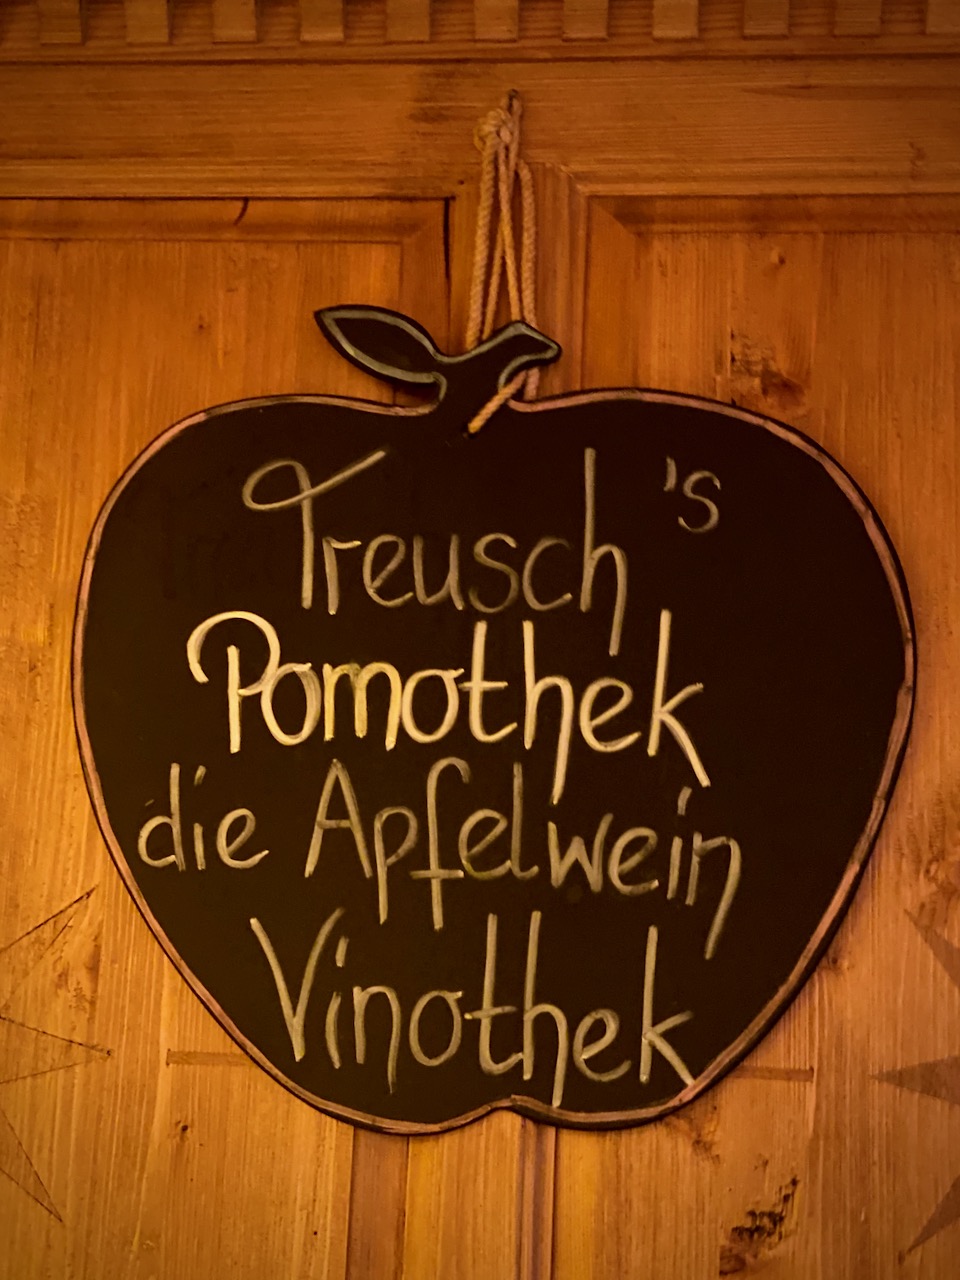 Treusch's
Pomothek
die Apfelwein
Vinothek